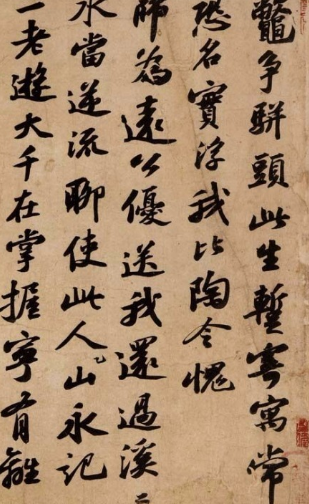 鼈争駢頭此生蹔寄寓常
恐名實浮我比陶令愧
師為遠公優送我還過溪二
水當逆流聊使此人山永記
二老遊大千在掌握寧有離